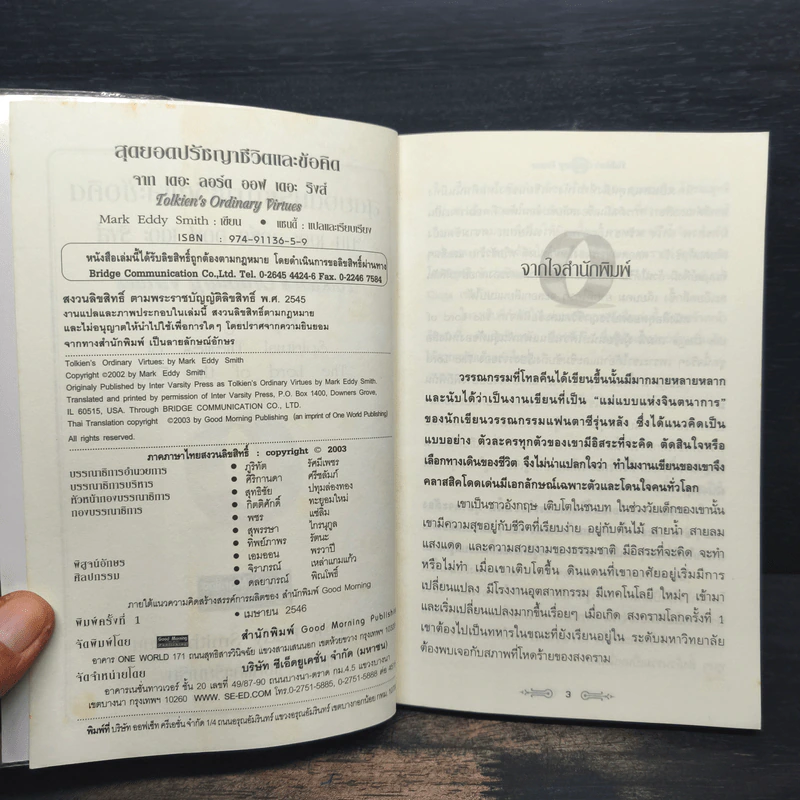 สุดยอดปรัชญาชีวิตและข้อคิด
จาก เดอะ ลอร์ด ออฟ เดอะ ริงส์
Tolkien's Ordinary Virtues
Mark Eddy Smith : เขียน • แซนดี้ : แปลและเรียบเรียง
ISBN : 974-91136-5-9
หนังสือเล่มนี้ได้รับลิขสิทธิ์ถูกต้องตามกฎหมาย โดยดำเนินการขอลิขสิทธิ์ผ่านทาง
Bridge Communication Co.,Ltd. Tel. 0-2645 4424-6 Fax. 0-2246 7584
สงวนลิขสิทธิ์ ตามพระราชบัญญัติลิขสิทธิ์ พ.ศ. 2545
งานแปลและภาพประกอบในเล่มนี้ สงวนลิขสิทธิ์ตามกฎหมาย
และไม่อนุญาตให้นำไปใช้เพื่อการใดๆ โดยปราศจากความยินยอม
จากทางสำนักพิมพ์ เป็นลายลักษณ์อักษร
Tolkien's Ordinary Virtues: by Mark Eddy Smith
Copyright ©2002 by Mark Eddy Smith
Originaly Published by Inter Varsity Press as Tolkien's Ordinary Virtues by Mark Eddy Smith.
Translated and printed by permission of Inter Varsity Press, P.O. Box 1400, Downers Grove,
IL 60515, USA. Through BRIDGE COMMUNICATION CO., LTD.
Thai Translation copyright ©2003 by Good Morning Publishing (an imprint of One World Publishing)
All rights reserved.
ภาคภาษาไทยสงวนลิขสิทธิ์ : copyright © 2003
บรรณาธิการอำนวยการ • ภูริทัต รัศมีเพชร
บรรณาธิการบริหาร • ศิริกานดา ศรีชลัมภ์
หัวหน้ากองบรรณาธิการ • สุทธิชัย ปทุมล่องทอง
กองบรรณาธิการ • กิตติศักดิ์ ทะยอมใหม่
• พชร แซ่ลิ้ม
• สุพรรษา ไกรนุกูล
• ทิพย์ภาพร รัตนะ
พิสูจน์อักษร • เอมออน พรวาปี
ศิลปกรรม • จิราภรณ์ เหล่าแกมแก้ว
• ดลยาภรณ์ พิณโพธิ์
ภายใต้แนวความคิดสร้างสรรค์การผลิตของ สำนักพิมพ์ Good Morning
พิมพ์ครั้งที่ 1 • เมษายน 2546
จัดพิมพ์โดย Good Morning สำนักพิมพ์ Good Morning Publishing
อาคาร ONE WORLD 171 ถนนสุทธิสารวินิจฉัย แขวงสามเสนนอก เขตห้วยขวาง กรุงเทพฯ
จัดจำหน่ายโดย บริษัท ซีเอ็ดยูเคชั่น จำกัด (มหาชน)
อาคารเนชั่นทาวเวอร์ ชั้น 20 เลขที่ 49/87-90 ถนนบางนา-ตราด กม.4.5 แขวงบางนา
เขตบางนา กรุงเทพฯ 10260 WWW. SE-ED.COM โทร.0-2751-5885, 0-2751-5888
พิมพ์ที่ บริษัท ออฟเซ็ท ครีเอชั่น จำกัด 1/4 ถนนอรุณอัมรินทร์ แขวงอรุณอัมรินทร์ เขตบางกอกน้อย กทม.
จากใจสำนักพิมพ์
วรรณกรรมที่โทลคีนได้เขียนขึ้นนั้นมีมากมายหลายหลาก
และนับได้ว่าเป็นงานเขียนที่เป็น “แม่แบบแห่งจินตนาการ”
ของนักเขียนวรรณกรรมแฟนตาซีรุ่นหลัง ซึ่งได้แนวคิดเป็น
แบบอย่าง ตัวละครทุกตัวของเขามีอิสระที่จะคิด ตัดสินใจหรือ
เลือกทางเดินของชีวิต จึงไม่น่าแปลกใจว่า ทำไมงานเขียนของเขาจึง
คลาสสิคโดดเด่นมีเอกลักษณ์เฉพาะตัวและโดนใจคนทั่วโลก
เขาเป็นชาวอังกฤษ เติบโตในชนบท ในช่วงวัยเด็กของเขานั้น
เขามีความสุขอยู่กับชีวิตที่เรียบง่าย อยู่กับต้นไม้ สายน้ำ สายลม
แสงแดด และความสวยงามของธรรมชาติ มีอิสระที่จะคิด จะทำ
หรือไม่ทำ เมื่อเขาเติบโตขึ้น ดินแดนที่เขาอาศัยอยู่เริ่มมีการ
เปลี่ยนแปลง มีโรงงานอุตสาหกรรม มีเทคโนโลยี ใหม่ๆ เข้ามา
และเริ่มเปลี่ยนแปลงมากขึ้นเรื่อยๆ เมื่อเกิด สงครามโลกครั้งที่ 1
เขาต้องไปเป็นทหารในขณะที่ยังเรียนอยู่ใน ระดับมหาวิทยาลัย
ต้องพบเจอกับสภาพที่โหดร้ายของสงคราม
3